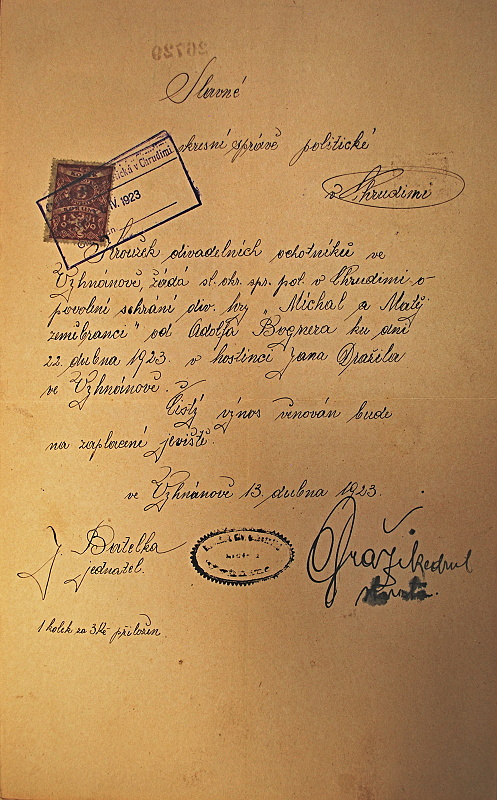 26720
Slavné
okresní správě politické
v Chrudimi
v Chrudimi
IV. 1923
Kroužek divadelních ochotníků ve
Vyhnánově žádá sl. okr. spr. pol. v Chrudimi o
povolení sehrání div. hry „Michal a Matěj
zeměbranci" od Adolfa Bognera ku dni
22. dubna 1923. v hostinci Jana Dražila
ve Vyhnánově.
Čistý výnos věnován bude
na zaplacení jeviště.
ve Vyhnánově 13. dubna 1923.
J. Bartelka
jednatel.
1 kolek za 3 Kč přiložen